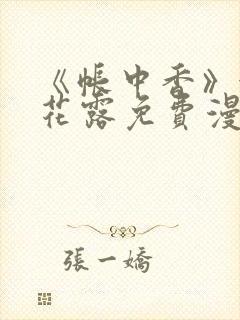 《帳中香》
花露免費漫
張一嬌